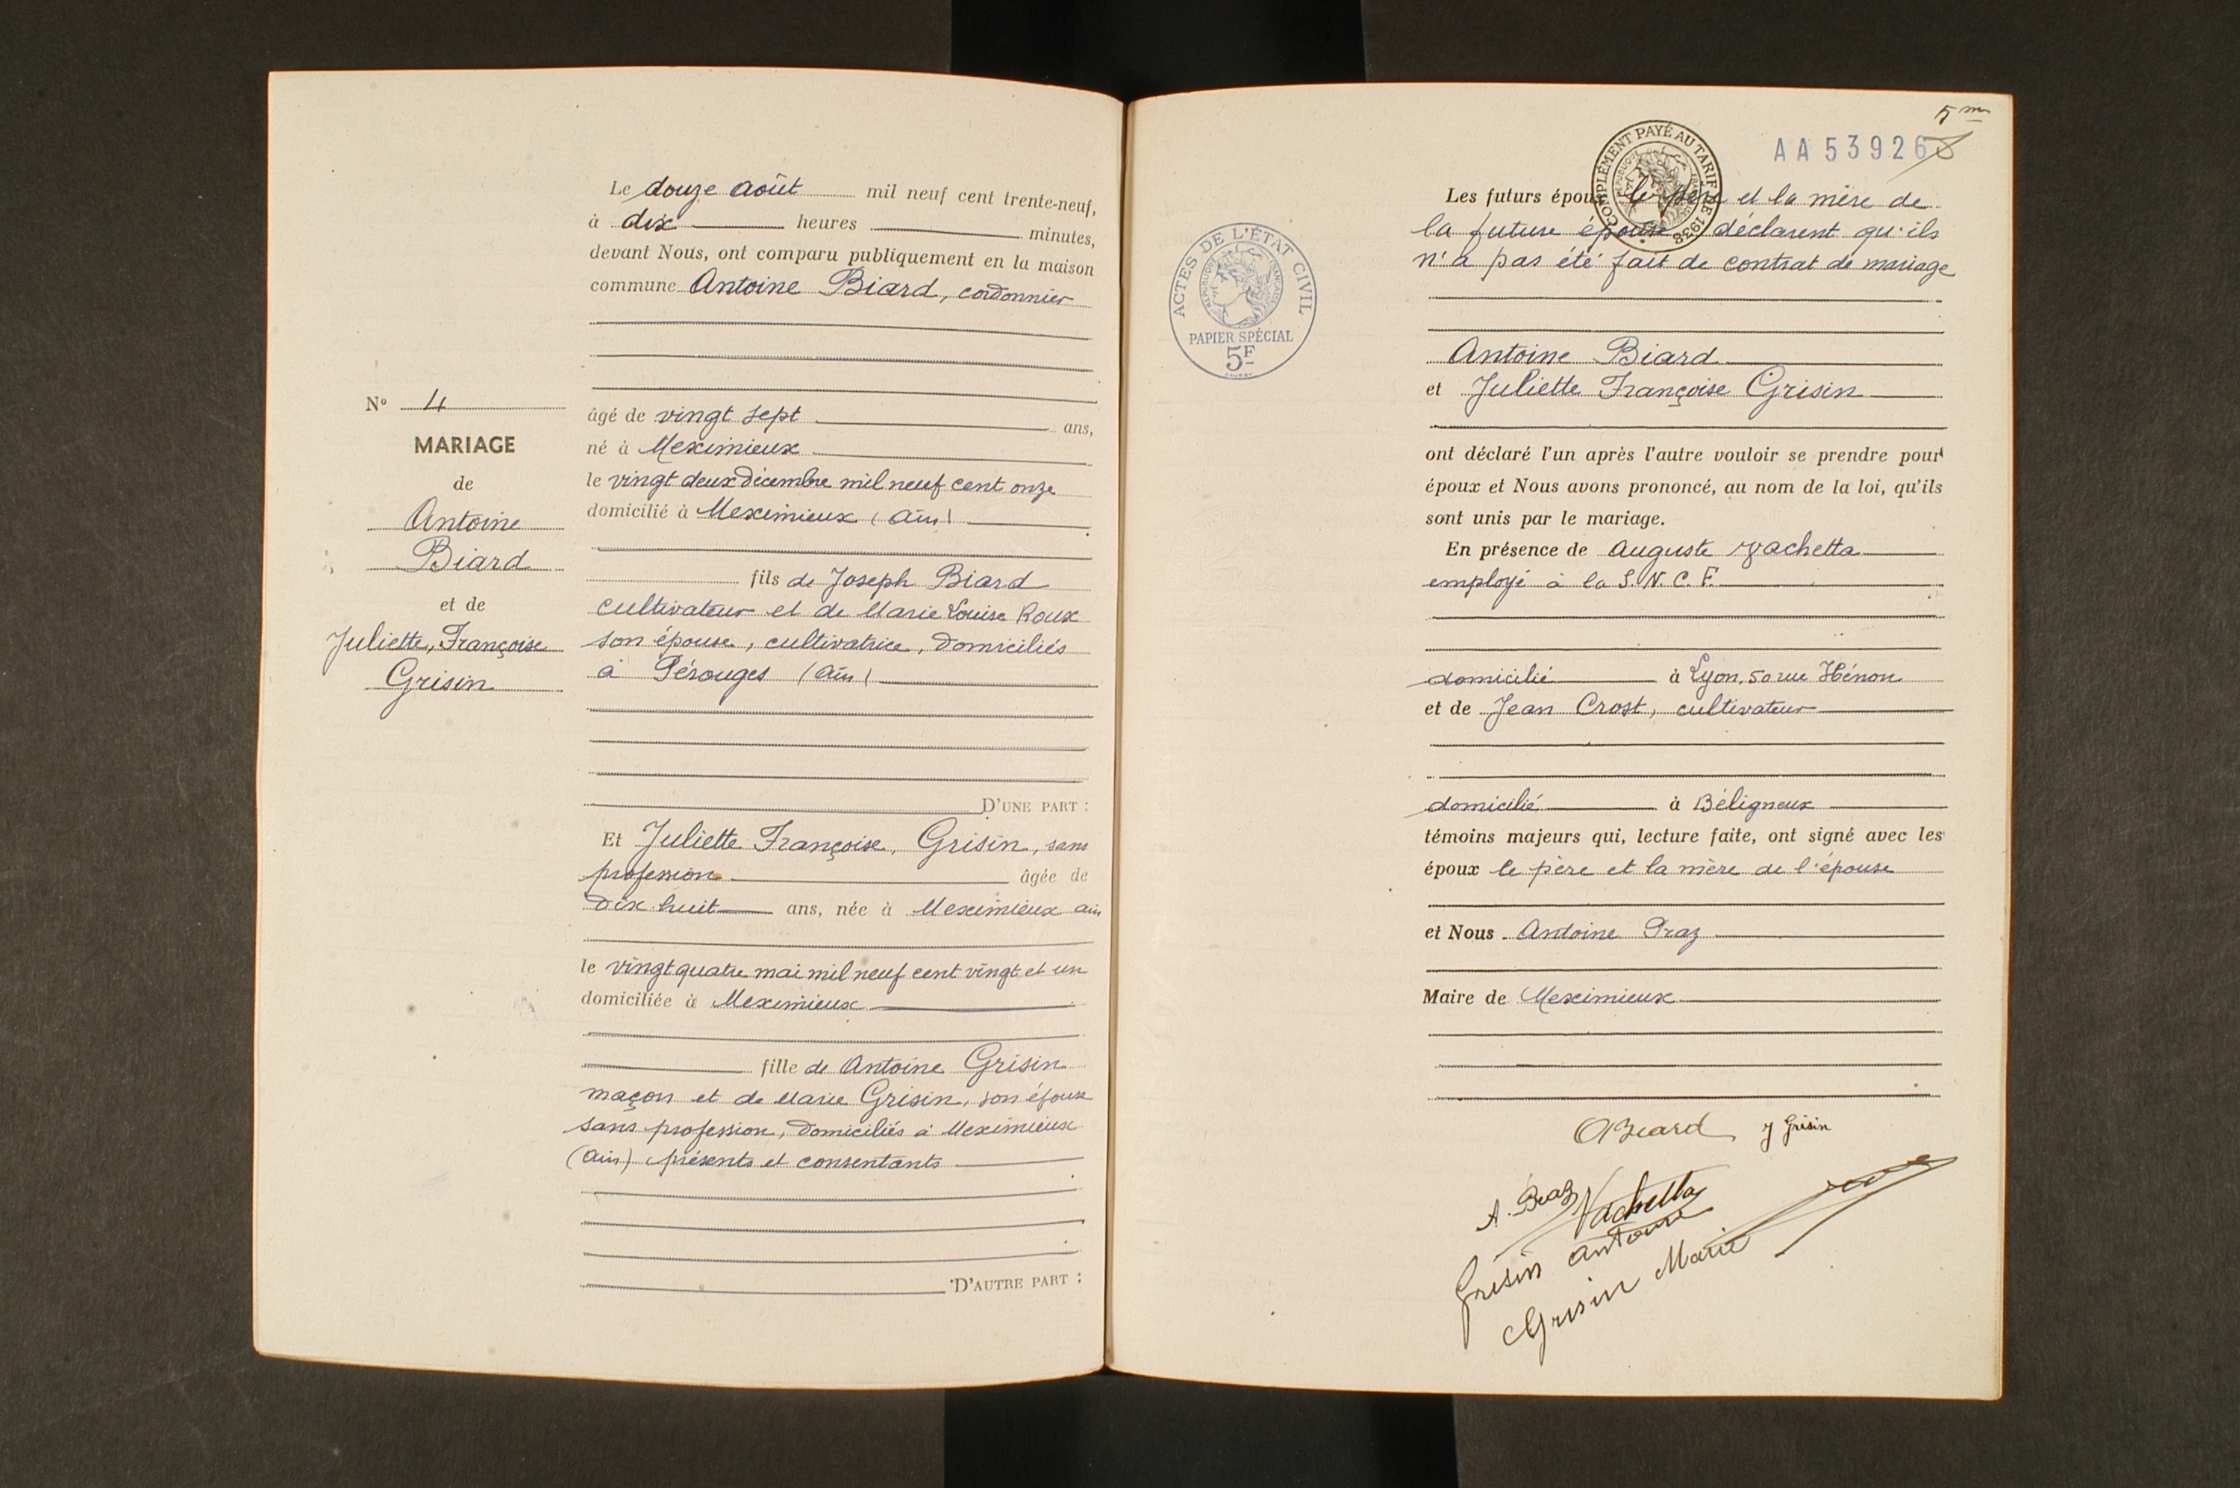 Le douze août mil neuf cent trente-neuf,
à dix heures minutes,
devant Nous, ont comparu publiquement en la maison
commune Antoine Biard, cordonnier
âgé de vingt sept ans,
né à Meximieux
le vingt deux décembre mil neuf cent onze
domicilié à Meximieux (Ain)
fils de Joseph Biard
cultivateur et de Marie Louise Roux
son épouse, cultivatrice, domiciliés
à Pérouges (Ain)
D'UNE PART :
Et Juliette Françoise, Grisin, sans
profession âgée de
dix huit ans, née à Meximieux ain
le vingt quatre mai mil neuf cent vingt et un
domiciliée à Meximieux
fille de Antoine Grisin
maçon et de Marie Grisin, son épouse
sans profession, domiciliés à Meximieux
(Ain) présents et consentants
D'AUTRE PART :
N° 4
MARIAGE
de
Antoine
Biard
et de
Juliette, Françoise
Grisin
5 m
AA 53926
COMPLÉMENT PAYÉ AU TARIF DE 1938
ACTES DE L'ÉTAT CIVIL
RÉPUBLIQUE FRANÇAISE
PAPIER SPÉCIAL
5F
Les futurs époux le père et la mère de
la future épouse déclarent qu'ils
n'a pas été fait de contrat de mariage
Antoine Biard
et Juliette Françoise Grisin
ont déclaré l'un après l'autre vouloir se prendre pour
époux et Nous avons prononcé, au nom de la loi, qu'ils
sont unis par le mariage.
En présence de Auguste Vachetta
employé à la S.N.C.F.
domicilié à Lyon, 50 rue Hénon
et de Jean Crost, cultivateur
domicilié à Béligneux
témoins majeurs qui, lecture faite, ont signé avec les
époux le père et la mère de l'épouse
et Nous Antoine Praz
Maire de Meximieux
ABiard J Grisin
A. Praz Vachetta
Grisin Antoine
Grisin Marie